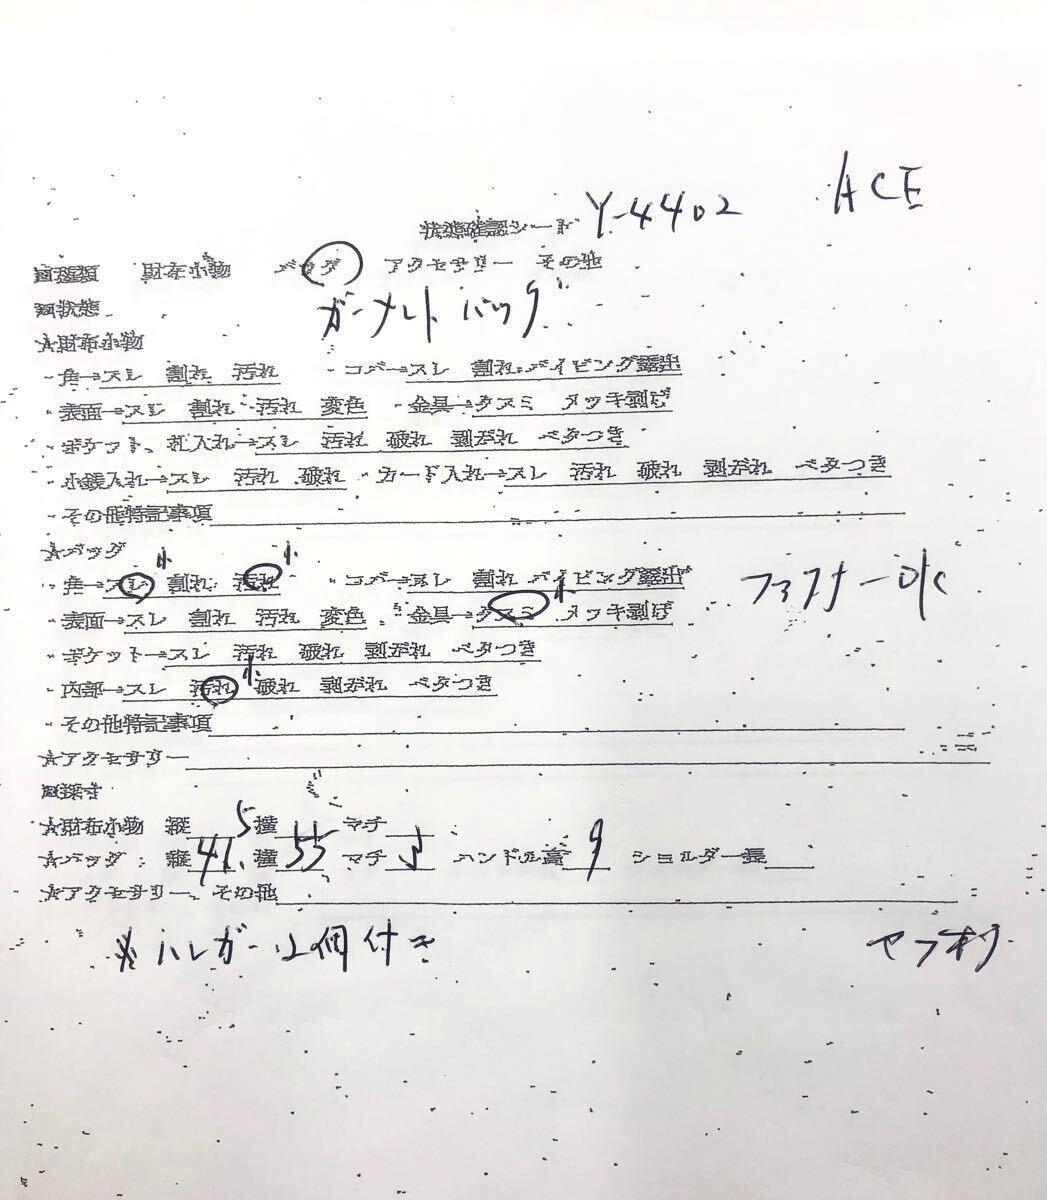 状態確認シート Y-4402 ACE
■種類 財布小物 バッグ アクセサリー その他
■状態 ガーメントバッグ
★財布小物
・角→スレ 割れ 汚れ ・コバ→スレ 割れ パイピング露出
・表面→スレ 割れ 汚れ 変色 ・金具→クスミ メッキ剥げ
・ポケット、札入れ→スレ 汚れ 破れ 剥がれ ベタつき
・小銭入れ→スレ 汚れ 破れ ・カード入れ→スレ 汚れ 破れ 剥がれ ベタつき
・その他特記事項
★バッグ 小 小
・角→スレ 割れ 汚れ ・コバ→スレ 割れ パイピング露出 ファスナーOK
・表面→スレ 割れ 汚れ 変色 ・金具→クスミ 小 メッキ剥げ
・ポケット→スレ 汚れ 破れ 剥がれ ベタつき
・内部→スレ 汚れ 小 破れ 剥がれ ベタつき
・その他特記事項
★アクセサリー
■採寸
★財布小物 縦 横 マチ
★バッグ : 縦 41. 横 55 マチ ハンドル高 9 ショルダー長
★アクセサリー、その他
※ハンガー2個付き ヤフオク